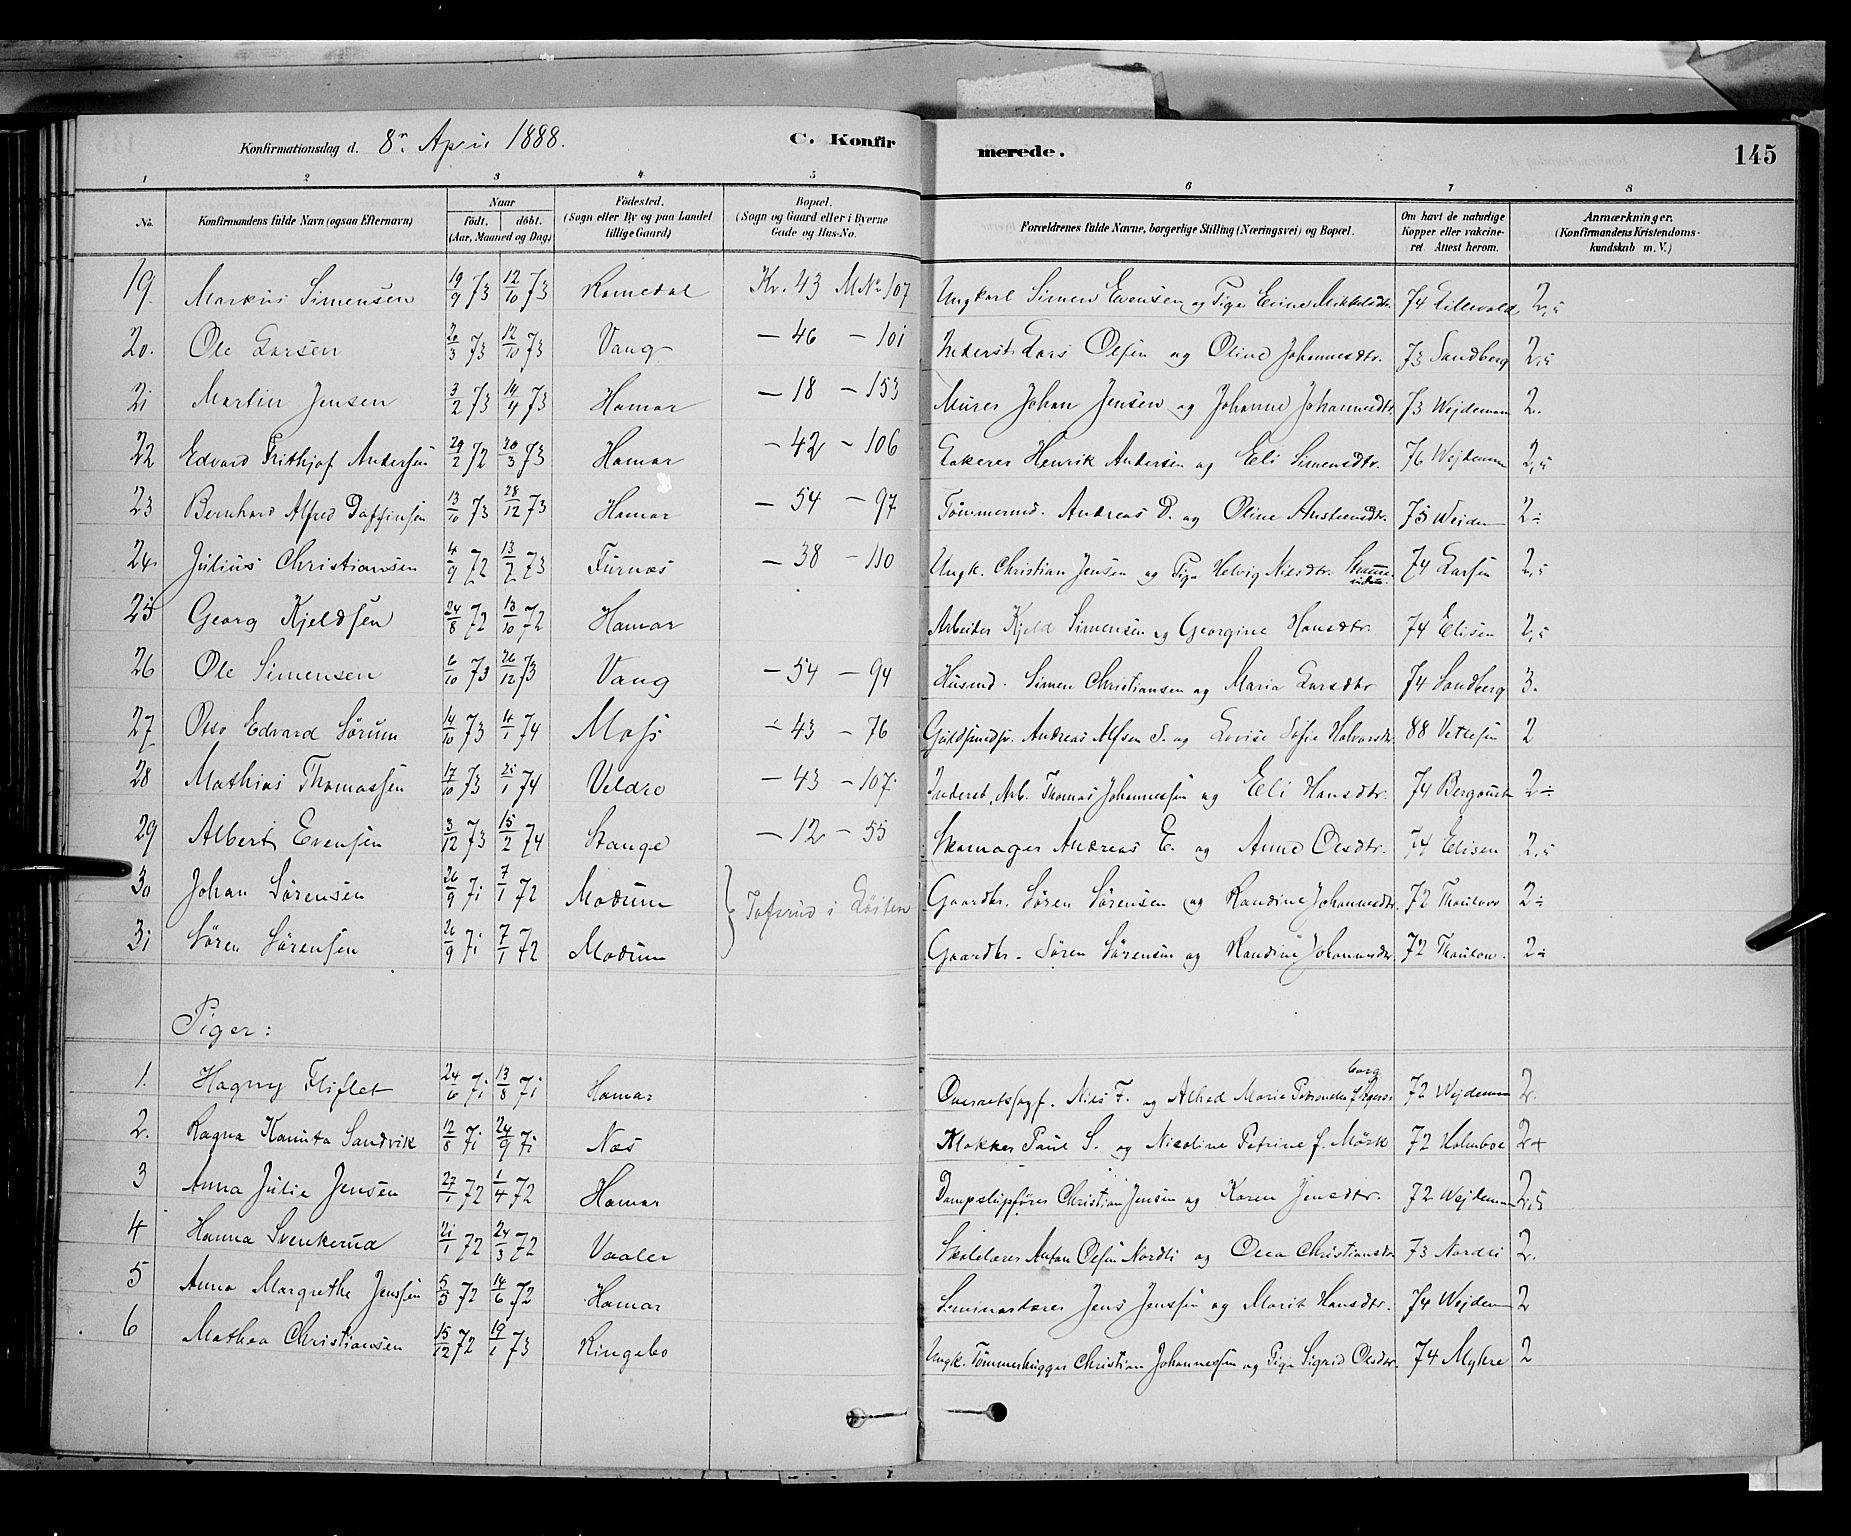 Konfirmationsdag d. 8n April 1888. C. Konfirmerede. 145
1 2 3 4 5 6 7 8
No. Konfirmandens fulde Navn (ogsaa Efternavn) Naar født. døbt. (Aar, Maaned og Dag) Fødested. (Sogn eller By og paa Landet tillige Gaard) Bopæl. (Sogn og Gaard eller i Byerne Gade og Hus-No. Forældrenes fulde Navne, borgerlige Stilling (Næringsvei) og Bopæl. Om havt de naturlige Kopper eller vakcineret. Attest herom. Anmærkninger. (Konfirmandens Kristendomskundskab m. V.)
19. Markus Simensen 19/9 73 12/10 73 Romedal Kv. 43 M No 107 Ungkarl Simen Evensen og Pige Eline Mikkelsdtr. 74 Lillevold 2,5
20. Ole Larsen 20/3 73 12/10 73 Vang — 46 — 101 Inderst Lars Olsen og Oline Johannesdtr. 73 Sandberg 2,5
21 Martin Jensen 3/2 73 14/4 73 Hamar — 18 — 153 Murer Johan Jensen og Johanne Johannesdtr. 73 Wejdemann 2.
22 Edvard Frithjof Andersen 29/2 72 20/3 73 Hamar — 42 — 106 Henrik Andersen og Eli Simensdtr. 76 Wejdemann 2,5
23 Bernhard Alfred Daffinsen 13/10 73 28/12 73 Hamar — 54 — 97 Tømmermd. Andreas D. og Oline Austensdtr. 75 Wejdem 2÷
24. Julius Christiansen 4/9 72 13/2 73 Furnæs — 38 — 110 Ungk. Christian Jensen og Pige Helvig Nilsdtr. 74 Larsen 2,5
25 Georg Kjeldsen 24/8 72 13/10 72 Hamar Arbeider Kjeld Simensen og Georgine Hansdtr. 74 Elisen 2,5
26 Ole Simensen 6/10 73 26/12 73 Vang — 54 — 94 Husmd. Simen Christiansen og Maria Larsdtr 74 Sandberg 3.
27 Otto Edvard Sørum 14/10 73 4/1 74 Moss — 43 — 76 Guldsmedsv. Andreas Alfsen S. og Lovise Sofie Halvorsdtr. 88 Vetlesen 2
28 Mathias Thomassen 17/10 73 21/1 74 Veldre — 43 — 107. Inderst, Arb. Thomas Johannessen og Eli Hansdtr. 74 Bergquist 2÷
29 Albert Evensen 3/12 73 15/2 74 Stange — 12 — 55 Skomager Andreas E. og Anne Olsdtr. 74 Elisen 2,5
30 Johan Sørensen 26/9 71 7/1 72 Modum } Tofsrud i Løiten Gaardbr. Søren Sørensen og Randine Johannesdtr. 72 Thaulow 2÷
31 Søren Sørensen 26/9 71 7/1 72 Modum Gaardbr. Søren Sørensen og Randine Johannesdtr 72 Thaulow. 2÷
Piger:
1. Hagny Fliflet 24/6 71 13/8 71 Hamar Overretssagf. Niels F. og Alhed Marie Petronelle f. Agersborg 72 Wejdemann 2.
2. Ragna Kamita Sandvik 12/8 71 24/9 71 Næs Klokker Paul S. og Nicoline Petrine f. Mørk 72 Holmboe 2+
3 Anna Julie Jensen 27/1 72 1/4 72 Hamar Dampskipsfører Christian Jensen og Karen Jensdtr. 72 Wejdemann 2,5
4 Hanna Svenkerud 21/1 72 24/3 72 Vaaler Skolelærer Anton Olsen Nordli og Olea Christiansdtr 73 Nordli 2.
5 Anna Margrethe Jenssen 5/5 72 14/6 72 Hamar Seminarlærer Jens Jenssen og Marit Hansdtr. 74 Wejdem 2
6 Mathea Christiansen 15/12 72 19/1 73 Ringebo Ungk. Tømmerhugger Christian Johannessen og Pige Sigrid Olsdtr. 74 Myhre 2